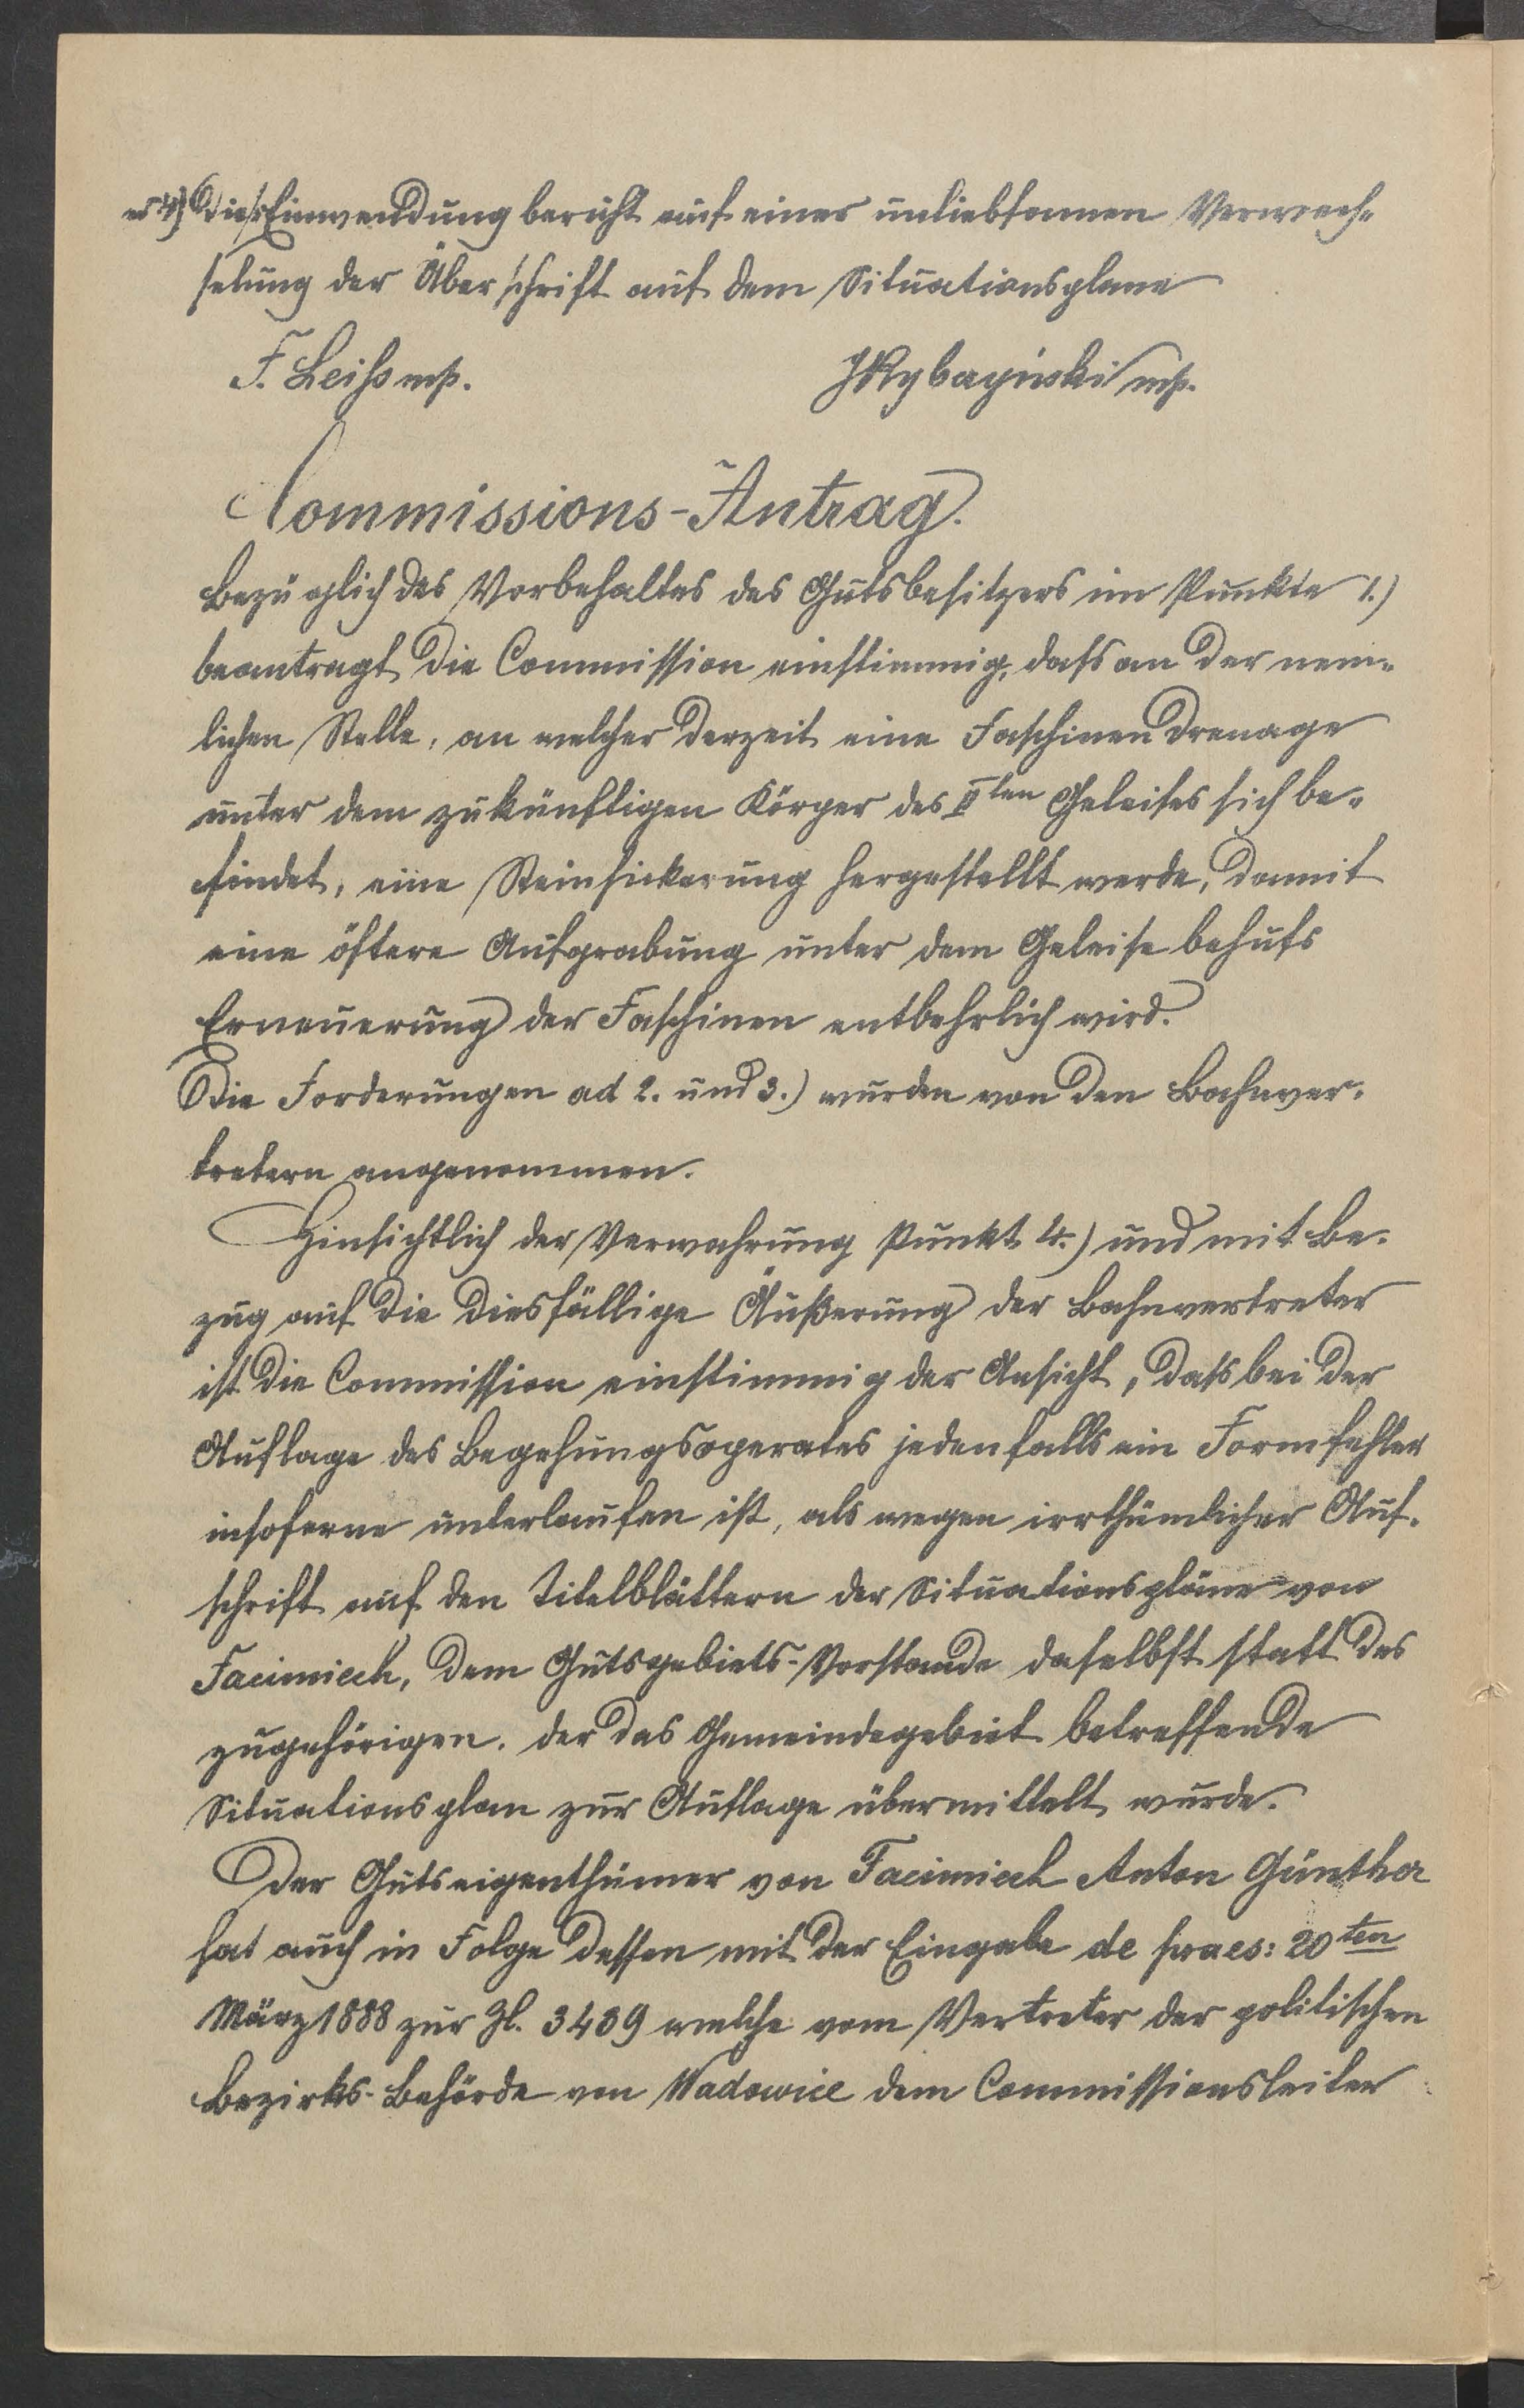 ad 4) Diese Einwendung beruht auf einer unliebsamen Verwech-
selung der Überschrift auf dem Situationsplane
F. Leiss mp. JRybayinski mp.
Commissions-Antrag.
Bezüglich des Vorbehaltes des Gutsbesitzers im Punkte 1.)
beantragt die Commission einstimmig, dass an der nem-
lichen Stelle, an welcher derzeit eine Faschinendrenage
unter dem zukünftigen Körper des IIten Geleises sich be-
findet, eine Steinsickerung hergestellt werde, damit
eine öftere Aufgrabung unter dem Geleise behufs
Erneuerung der Faschinen entbehrlich wird.
Die Forderungen ad 2. und 3.) wurden von den Bahnver-
tretern angenommen.
Hinsichtlich der Verwahrung Punkt 4.) und mit Be-
zug auf die diesfällige Äußerung der Bahnvertreter
ist die Commission einstimmig der Ansicht, dass bei der
Auflage des Begehungsoperates jedenfalls ein Formfehler
insoferne unterlaufen ist, als wegen irrthümlicher Auf-
schrift auf den Titelblättern der Situationspläne von
Facimiech, dem Gutsgebiets-Vorstande daselbst statt des
zugehörigen, der das Gemeindegebiet betreffende
Situationsplan zur Auflage übermittelt wurde.
Der Gutseigenthümer von Facimiech Anton Günther
hat auch in Folge dessen mit der Eingabe de praes: 20ten
März 1888 zur Zl. 3439 welche vom Vertreter der politischen
Bezirks-Behörde von Wadowice dem Commissionsleiter